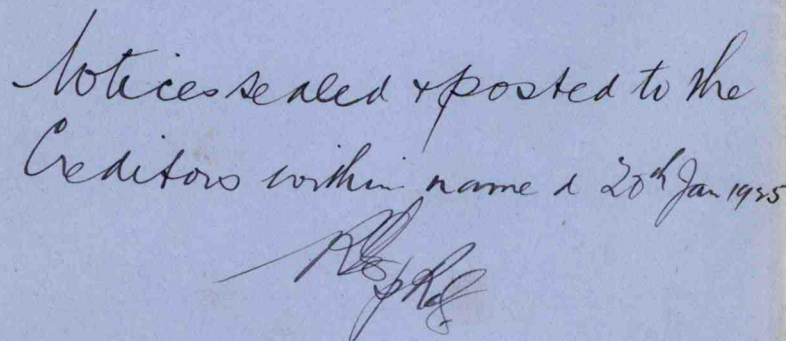 Notices sealed + posted to the
Creditors within named 20th Jan 1925